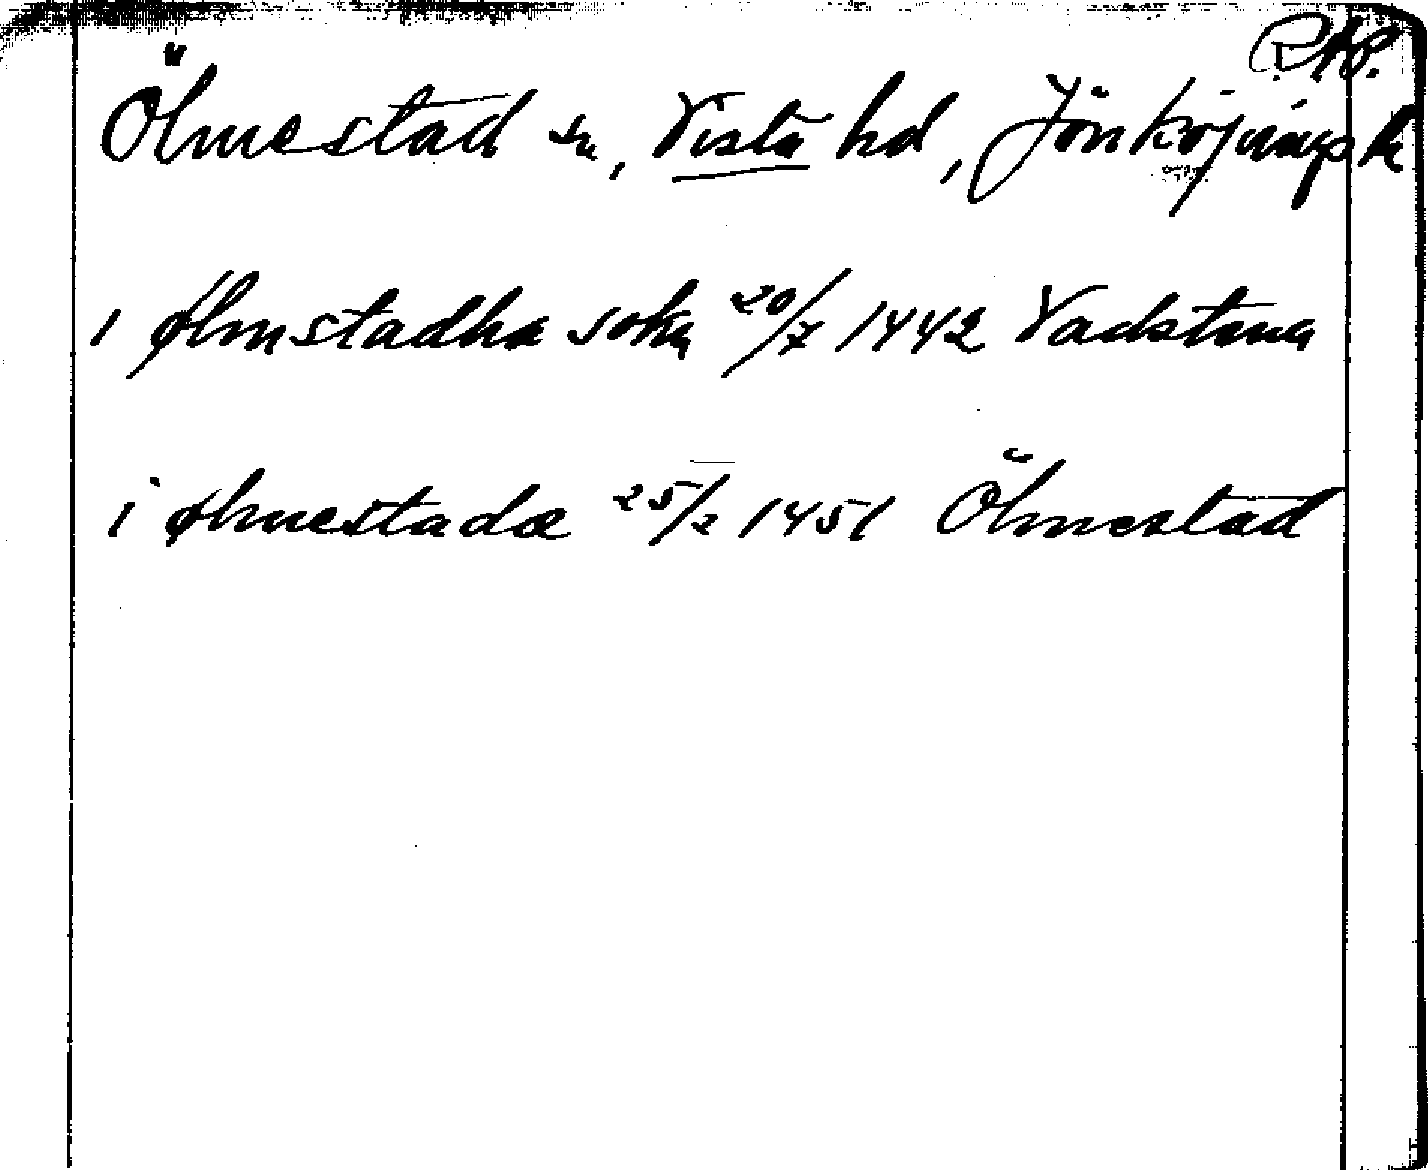 RAP.
Ölmestad sn, Vista hd, Jönköpings l.
i Ølmstadha sokn 20/7 1442 Vadstena
i Ølmestadæ 25/2 1451 Ölmestad